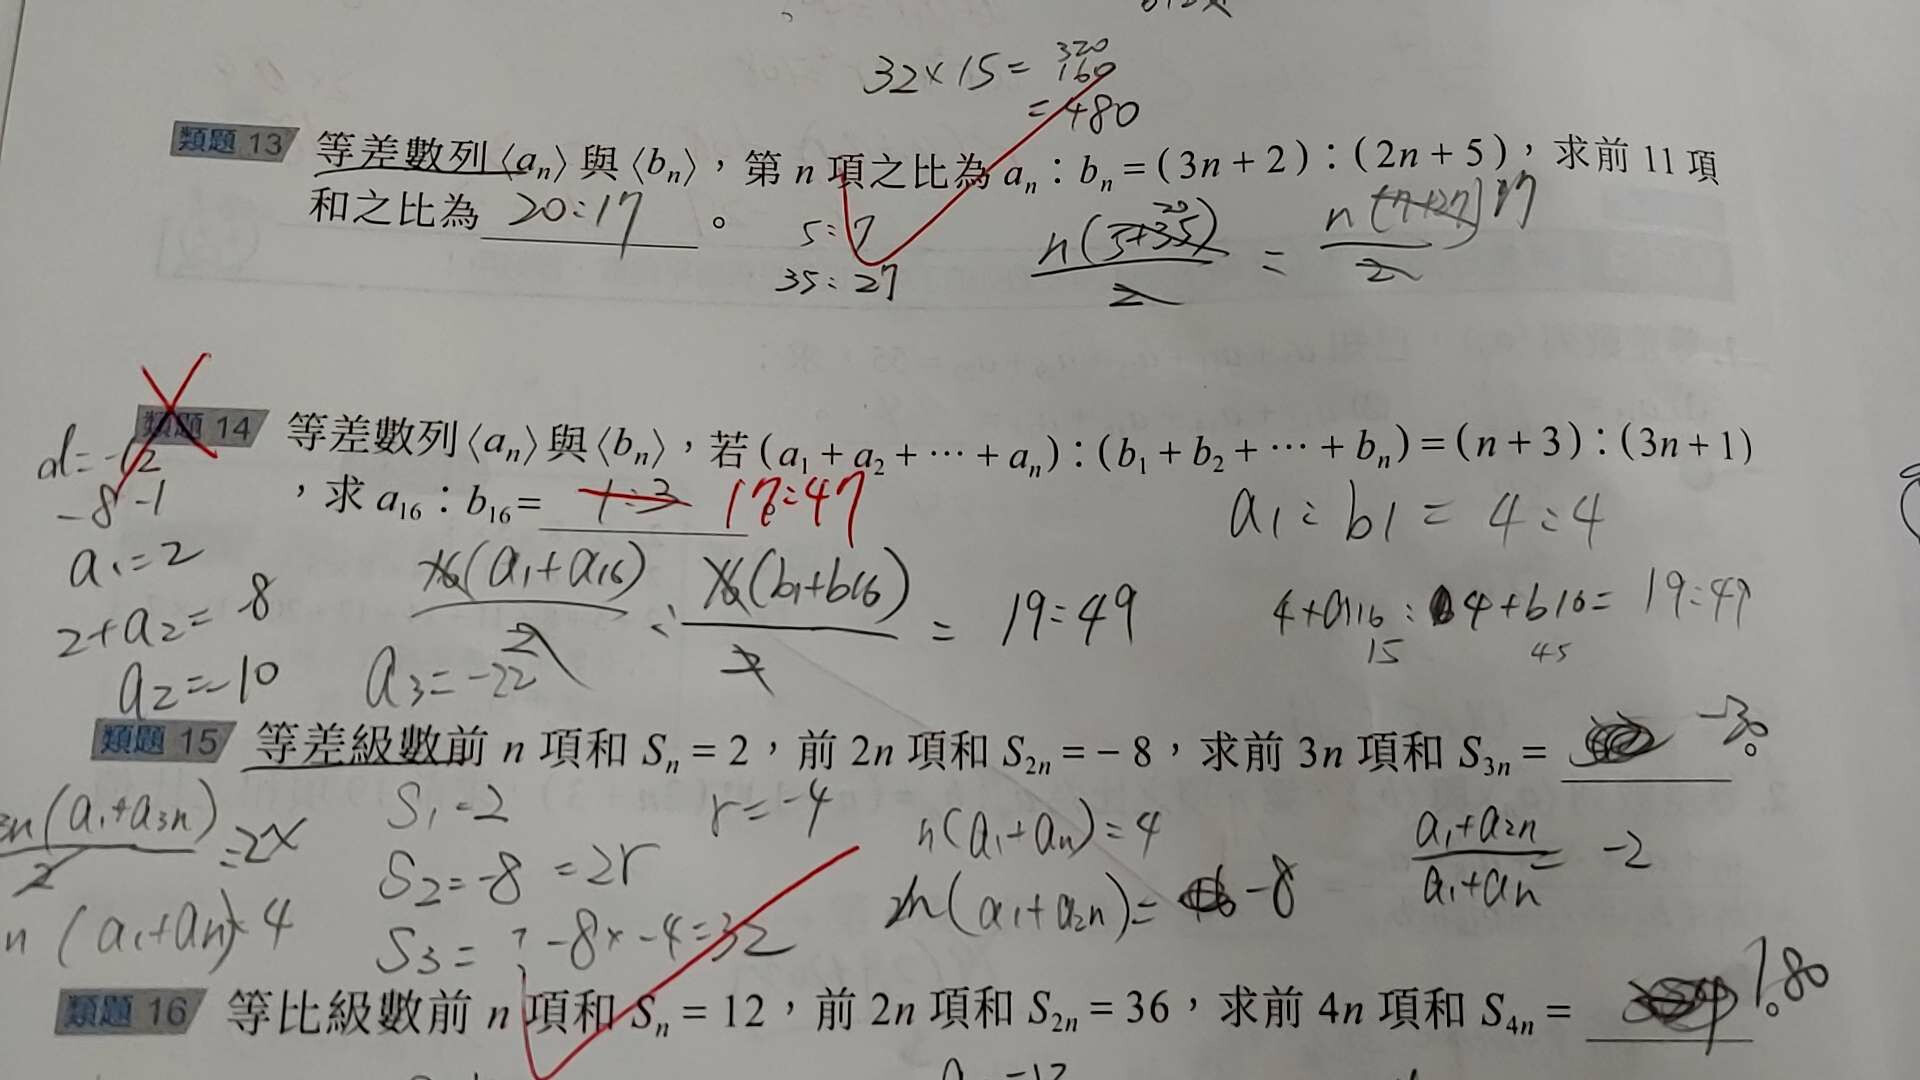 32×15= 320
160
=480
類題 13 等差數列⟨aₙ⟩與⟨bₙ⟩,第 n 項之比為 aₙ:bₙ=(3n+2):(2n+5),求前 11 項
和之比為 20:17 。
5:7
35:27
n(5+35) 20 / 2 = n(7+27) 17 / 2
類題 14 等差數列⟨aₙ⟩與⟨bₙ⟩,若(a₁+a₂+⋯+aₙ):(b₁+b₂+⋯+bₙ)=(n+3):(3n+1)
,求 a₁₆:b₁₆= 1:3 17:47
d=-12
-8-1
a₁=2
2+a₂=-8
a₂=-10
a₃=-22
16(a₁+a₁₆)/2 : 16(b₁+b16)/2 = 19:49
a₁:b1=4:4
4+a116:4+b16=19:49
15 45
類題 15 等差級數前 n 項和 Sₙ=2,前 2n 項和 S₂ₙ=-8,求前 3n 項和 S₃ₙ= -30 。
3n(a₁+a₃ₙ)/2 =2x
n(a₁+aₙ)=4
S₁=2
S₂=-8=2r
S₃=? -8×-4=32
r=-4
n(a₁+aₙ)=4
2n(a₁+a₂ₙ)= -8
a₁+a₂ₙ / a₁+aₙ = -2
類題 16 等比級數前 n 項和 Sₙ=12,前 2n 項和 S₂ₙ=36,求前 4n 項和 S₄ₙ= 180 。